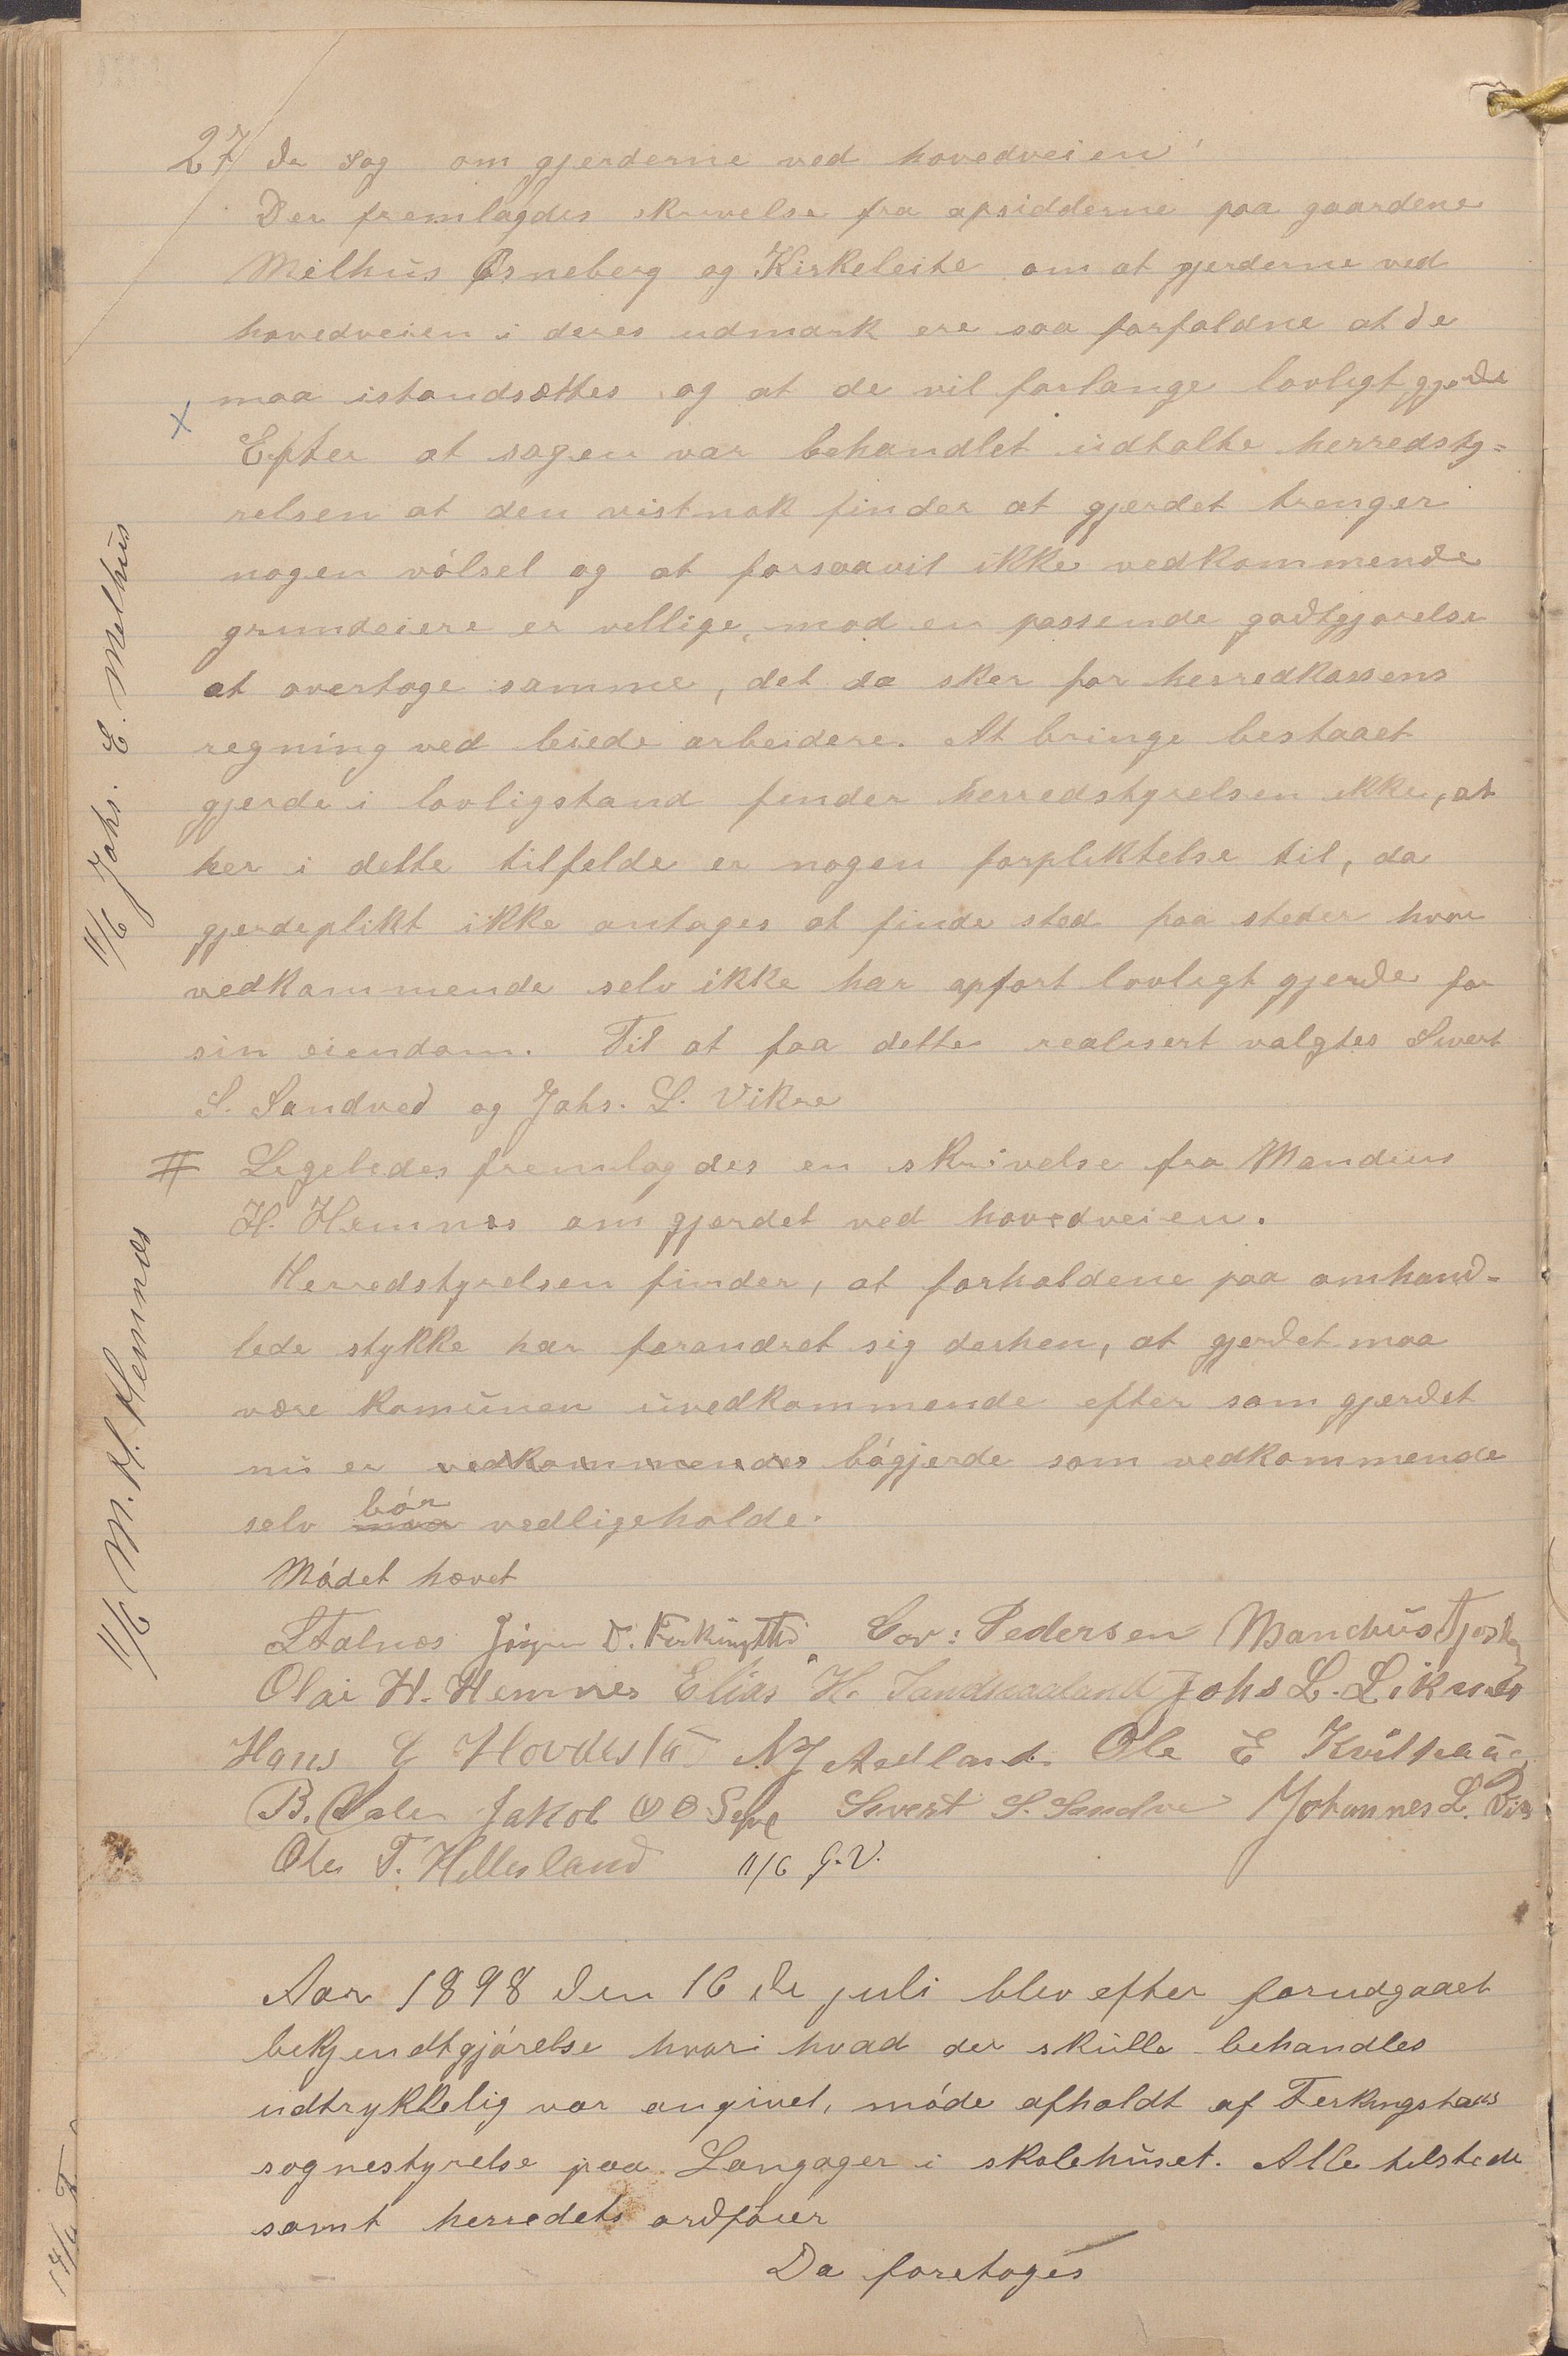 27 de sag om gjerderne ved hovedveien
Der fremlagdes skrivelse fra opsidderne paa gaardene
Milhus Ørneberg og Kirkeleite om at gjerderne ved
hovedveien i deres udmark ere saa forfaldne at de
maa istandsættes og at de vil forlange lovligt gjerde
Efter at sagen var behandlet udtalte herredsty=
relsen at den vistnok finder at gjerdet trenger
nogen vólsel og at forsaavit ikke vedkommende
grundeiere er vellige, mod en passende godtgjorelse
at overtage samme, det da sker for herredkassens
regning ved leiede arbeidere. At bringe bestaaet
gjerde i lovligstand finder herredstyrelsen ikke, at
her i dette tilfelde er nogen forpliktelse til, da
gjerdeplikt ikke antages at finde sted paa steder hvor
vedkommende selv ikke har opfort lovligt gjerde for
sin eiendom. Til at faa dette realisert valgtes Sivert
S. Sandved og Johs. L. Vikre
# Ligeledes fremlagdes en skrivelse fra Mandius
H. Hemnes om gjerdet ved hovedveien.
Herredstyrelsen finder, at forholdene paa omhand-
lede stykke har forandret sig derhen, at gjerdet maa
være komunen uvedkommende efter som gjerdet
nu er vedkommendes bógjerde som vedkommende
selv bór vedligeholde.
Módet hævet
Jørgen D. Ferkingstad Gov: Pedersen Mandius
Olai H. Hemnes Elias H. Johs L.
Hans Hovdestu Ole E Kvilhaug
B. Jakob Sivert S. Sandve Johannes L.
Ole T. Hillesland 11/6 J.V.
Aar 1898 den 16 de juli blev efter forudgaaet
bekjendtgjórelse hvori hvad der skulle behandles
udtrykkelig var angivet, móde afholdt af Ferkingstads
sognestyrelse paa Langager i skolehuset. Alle tilstede
samt herredets ordfórer
Da foretoges
11/6 Johs. E. Melhus
11/6 M. H. Hemnes